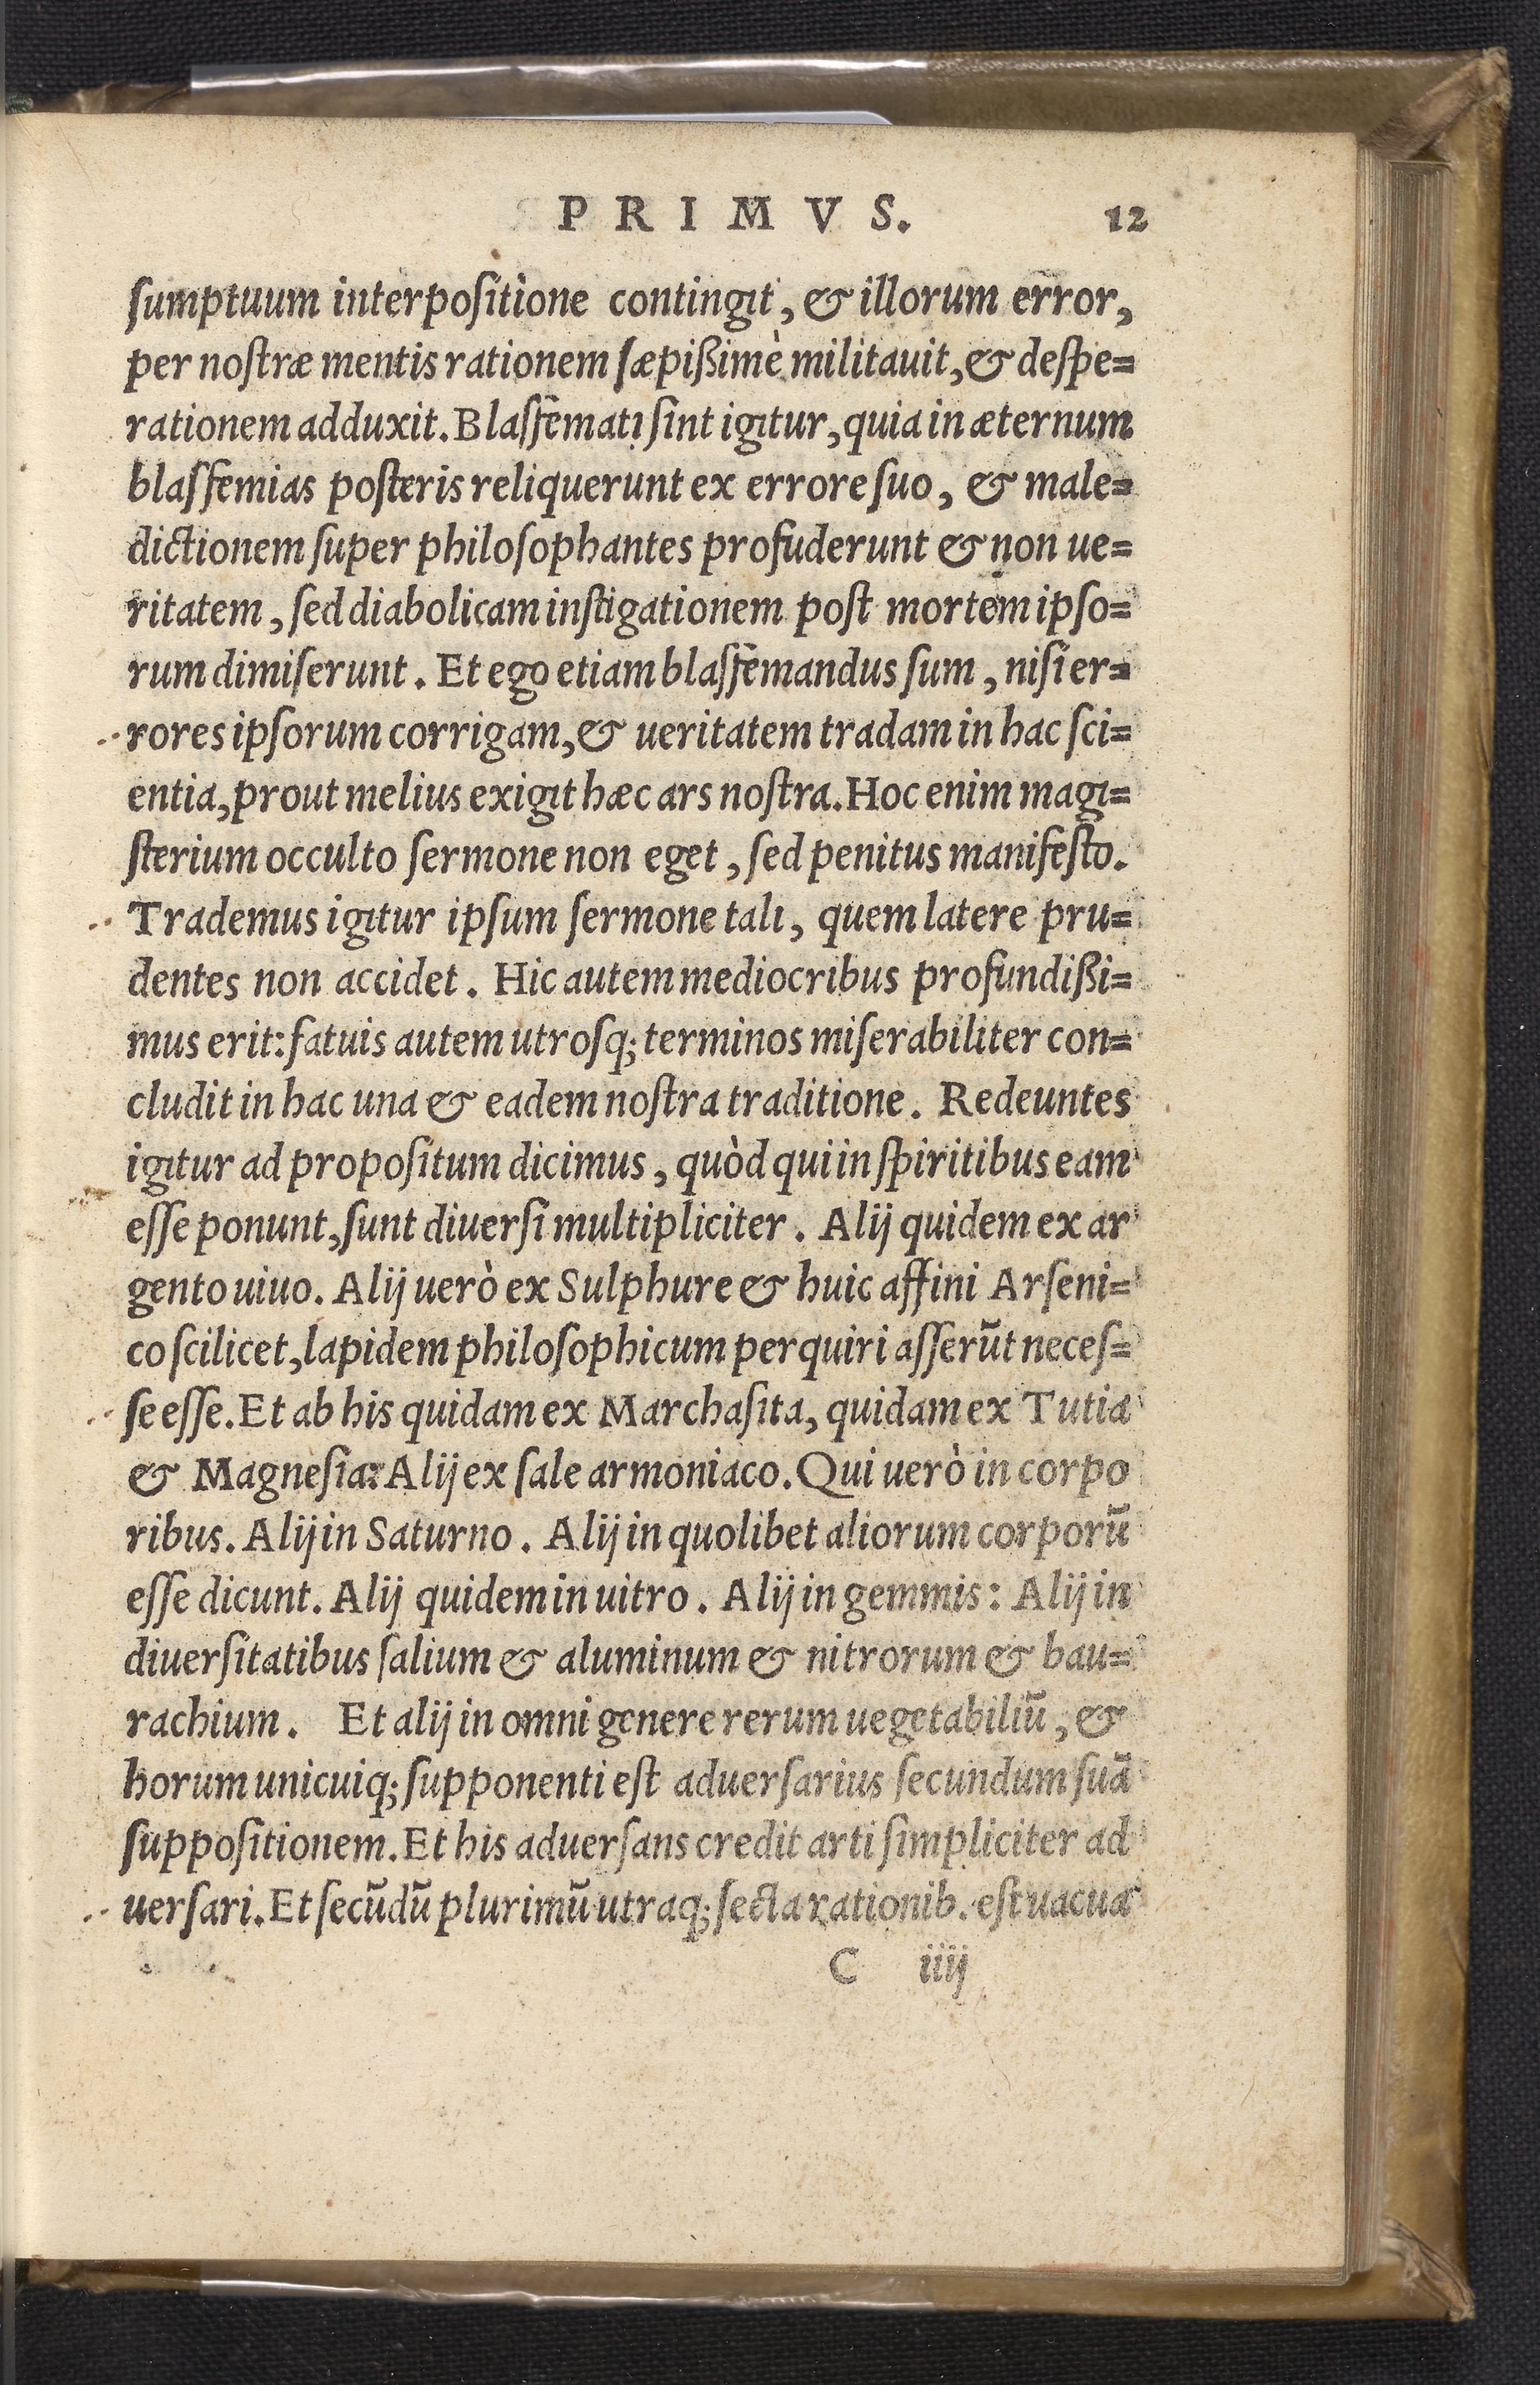 PRIMVS. 12
ſumptuum interpoſitione contingit, & illorum error,
per noſtræ mentis rationem ſæpißimè militauit, & deſpe=
rationem adduxit. Blaſfemati ſint igitur, quia in æternum
blaſfemias poſteris reliquerunt ex errore ſuo, & male=
dictionem ſuper philoſophantes profuderunt & non ue=
ritatem, ſed diabolicam inſtigationem poſt mortem ipſo=
rum dimiſerunt. Et ego etiam blaſfemandus ſum, niſi er=
rores ipſorum corrigam, & ueritatem tradam in hac ſci=
entia, prout melius exigit hæc ars noſtra. Hoc enim magi=
ſterium occulto ſermone non eget, ſed penitus manifeſto.
Trademus igitur ipſum ſermone tali, quem latere pru=
dentes non accidet. Hic autem mediocribus profundißi=
mus erit: fatuis autem utroſq; terminos miſerabiliter con=
cludit in hac una & eadem noſtra traditione. Redeuntes
igitur ad propoſitum dicimus, quòd qui in ſpiritibus eam
eſſe ponunt, ſunt diuerſi multipliciter. Alij quidem ex ar
gento uiuo. Alij uerò ex Sulphure & huic affini Arſeni=
co ſcilicet, lapidem philoſophicum perquiri aſſerūt neceſ=
ſe eſſe. Et ab his quidam ex Marchaſita, quidam ex Tutia
& Magneſia: Alij ex ſale armoniaco. Qui uerò in corpo
ribus. Alij in Saturno. Alij in quolibet aliorum corporū
eſſe dicunt. Alij quidem in uitro. Alij in gemmis: Alij in
diuerſitatibus ſalium & aluminum & nitrorum & bau=
rachium. Et alij in omni genere rerum uegetabiliū, &
horum unicuiq; ſupponenti eſt aduerſarius ſecundum ſuā
ſuppoſitionem. Et his aduerſans credit arti ſimpliciter ad
uerſari. Et ſecūdū plurimū utraq; ſecta rationib. eſt uacua
C iiij